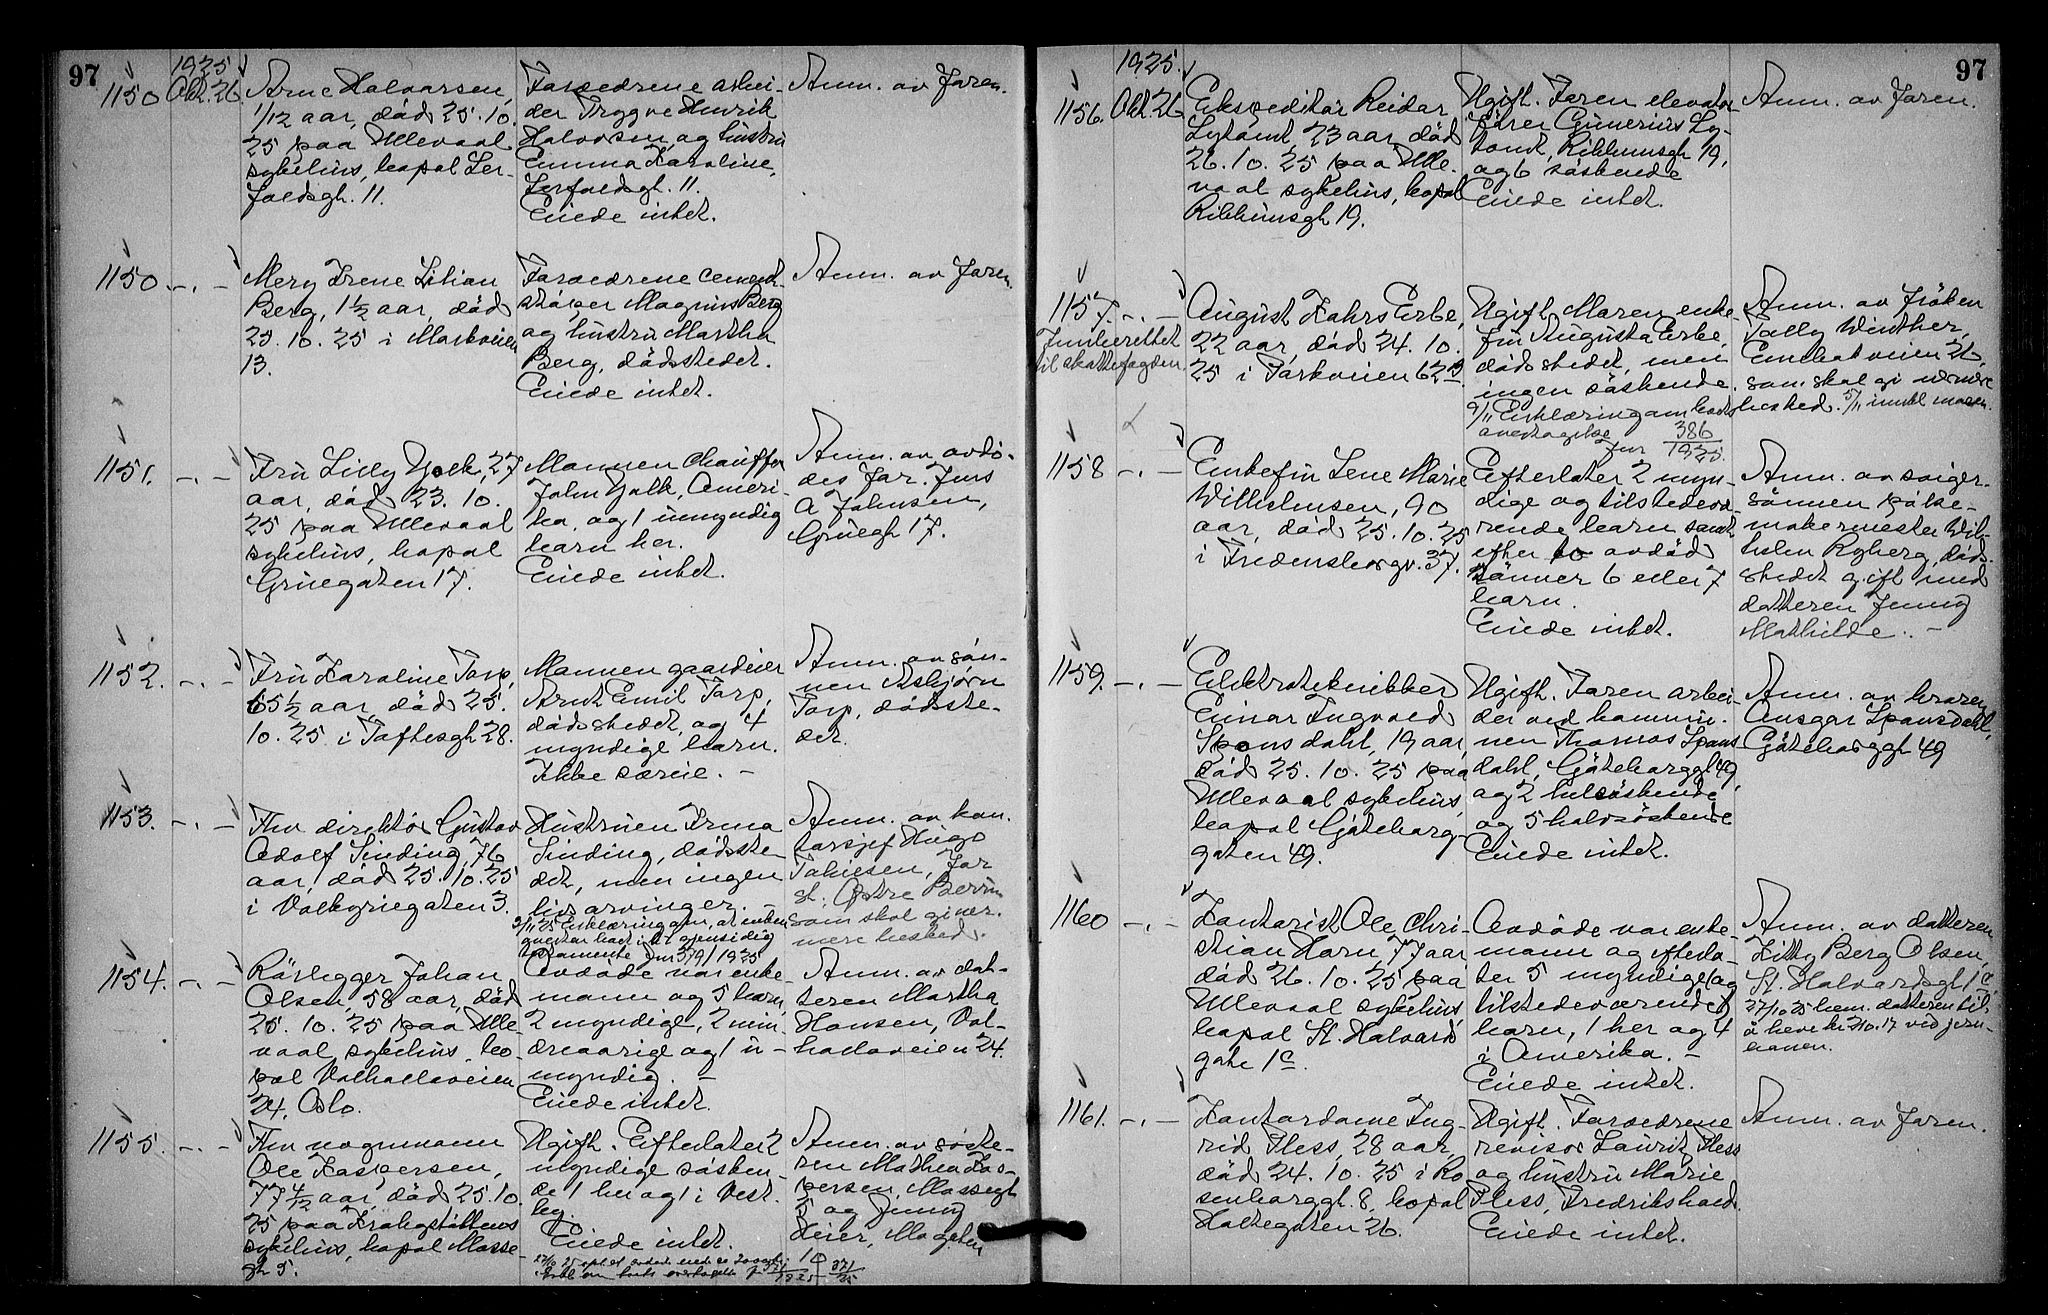 97
1925
1150 Okt. 26.
Arne Halvorsen,
1/12 aar, død 25. 10.
25 paa Ullevaal
sykehus, bopæl Ler-
foldsgt. 11.
Forældrene arbei-
der Trygve Henrik
Halvorsen og hustru
Emma Karoline,
Lerfoldsgt. 11.
Eiede intet.
Anm. av faren.
1150 -.-
Mery Irene Lilian
Berg, 1 1/2 aar, død
25. 10. 25 i Markveien
13.
Forældrene cement-
støper Magnus Berg
og hustru Martha
Berg, dødsstedet.
Eiede intet.
Anm. av faren.
1151. -.-
Fru Lilly Yolk, 27
aar, død 23. 10.
25 paa Ullevaal
sykehus, bopæl
Grüegaten 17.
Mannen chauffør
John Yolk, Ameri-
ka, og 1 umyndig
barn her.
Eiede intet.
Anm. av avdø-
des far. Jens
A Johnsen,
Grüegt 17.
1152. -.-
Fru Karoline Torp,
65 1/2 aar, død 25.
10. 25 i Toftesgt 28.
Mannen gaardeier
Arnt Emil Torp,
dødsstedet, og 4
myndige barn.
Ikke særeie. -
Anm. av søn-
nen Asbjørn
Torp, dødsste-
det.
1153. -.-
Fhv direktør Gustav
Adolf Sinding, 76
aar, død 25. 10. 25
i Valkyriegaten 3.
Hustruen Irma
Sinding, dødsste-
det, men ingen
livsarvinger. -
9/11 25 Erklæring om, at enken
gjensidig
testamente Jnr 379/1925
Anm. av kon-
torsjef Hugo
Østre Bærum
som skal gi nær-
mere besked.
1154. -.-
Rørlegger Johan
Olsen, 58 aar, død
25. 10. 25 paa Ulle-
vaal sykehus, bo-
pæl Valhallaveien
24, Oslo.
Avdøde var enke-
mann og 5 barn,
2 myndige, 2 min-
dreaarige og 1 u-
myndig. -
Eiede intet.
Anm. av dat-
teren Martha
Hansen, Val-
hallaveien 24.
1155. -.-
Fhv vognmann
Ole Kaspersen,
77 4/12 aar, død 25. 10.
25 paa Krohgstøttens
sykehus, bopæl Mosse-
gt 5.
Ugift. Efterlater 2
myndige søsken-
de 1 her og 1 i Vest-
by.
Eiede intet.
Anm. av søste-
ren Mathea Kas-
persen, Mossegt
5 og Jenny
Heier,
371/25
97
1925.
1156. Okt. 26
Ekspeditør Reidar
Lytomt, 23 aar, død
26. 10. 25 paa Ulle-
vaal sykehus, bopæl
Rubbunsgt 19.
Ugift. Faren elevator
fører Gunerius Ly-
tomt, Rubbunsgt 19,
og 6 søskende
Eiede intet.
Anm. av faren.
1157. -.-
Innberettet
til skattefogden.
August Fahrs Erbe,
22 aar, død 24. 10.
25 i Parkveien 62 B
Ugift. Moren enke
fru Augusta Erbe,
dødsstedet, men
ingen søskende.
9/11 Erklæring om bo-
overtagelse
Jnr 386/1925.
Anm. av frøken
Tolly Winther,
Einarveien 26,
som skal gi nærmere
besked. 5/11 moren.
1158 -.-
Enkefru Lene Marie
Wilhelmsen, 90
aar, død 25. 10. 25
i Fredensborgv. 37.
Efterlater 2 myn-
dige og tilstedevæ-
rende barn samt
efter to avdød
sønner 6 eller 7
barn.
Eiede intet.
Anm. av sviger-
sønnen pølse-
makermester Wil-
helm Ryberg, døds-
stedet gift med
datteren Jenny
Mathilde. -
1159. -.-
Elektrotekniker
Einar Ingvald
Sponsdahl, 19 aar,
død 25. 10. 25 paa
Ullevaal sykehus,
bopæl Gøteborg-
gaten 49.
Ugift. Faren arbei-
der ved kommu-
nen Thomas Spons
dahl, Gøteborggt 49,
og 2 helsøskende
og 5 halvsøskende
Eiede intet.
Anm. av broren
Ansgar Sponsdahl,
Gøteborggt 49
1160 -.-
Kontorist Ole Chri-
stian Horn, 77 aar
død 26. 10. 25 paa
Ullevaal sykehus,
bopæl St. Halvards
gate 1c.
Avdøde var enke-
mann og efterla-
ter 5 myndige (og
tilstedeværende)
barn, 1 her og 4
i Amerika. -
Eiede intet.
Anm. av datteren
Kitty Berg Olsen,
St. Halvardsgt 1c,
27/10 25 bem. datteren til
å heve kr 210.17 ved jern-
banen.
1161. -.-
Kontordame Ing-
rid Pless, 28 aar,
død 24. 10. 25 i Ro
senborggt. 8, bopæl
Holtegaten 26.
Ugift. Forældrene
revisor Lauritz Pless
og hustru Marie
Pless, Fredrikshald.
Eiede intet.
Anm. av faren.